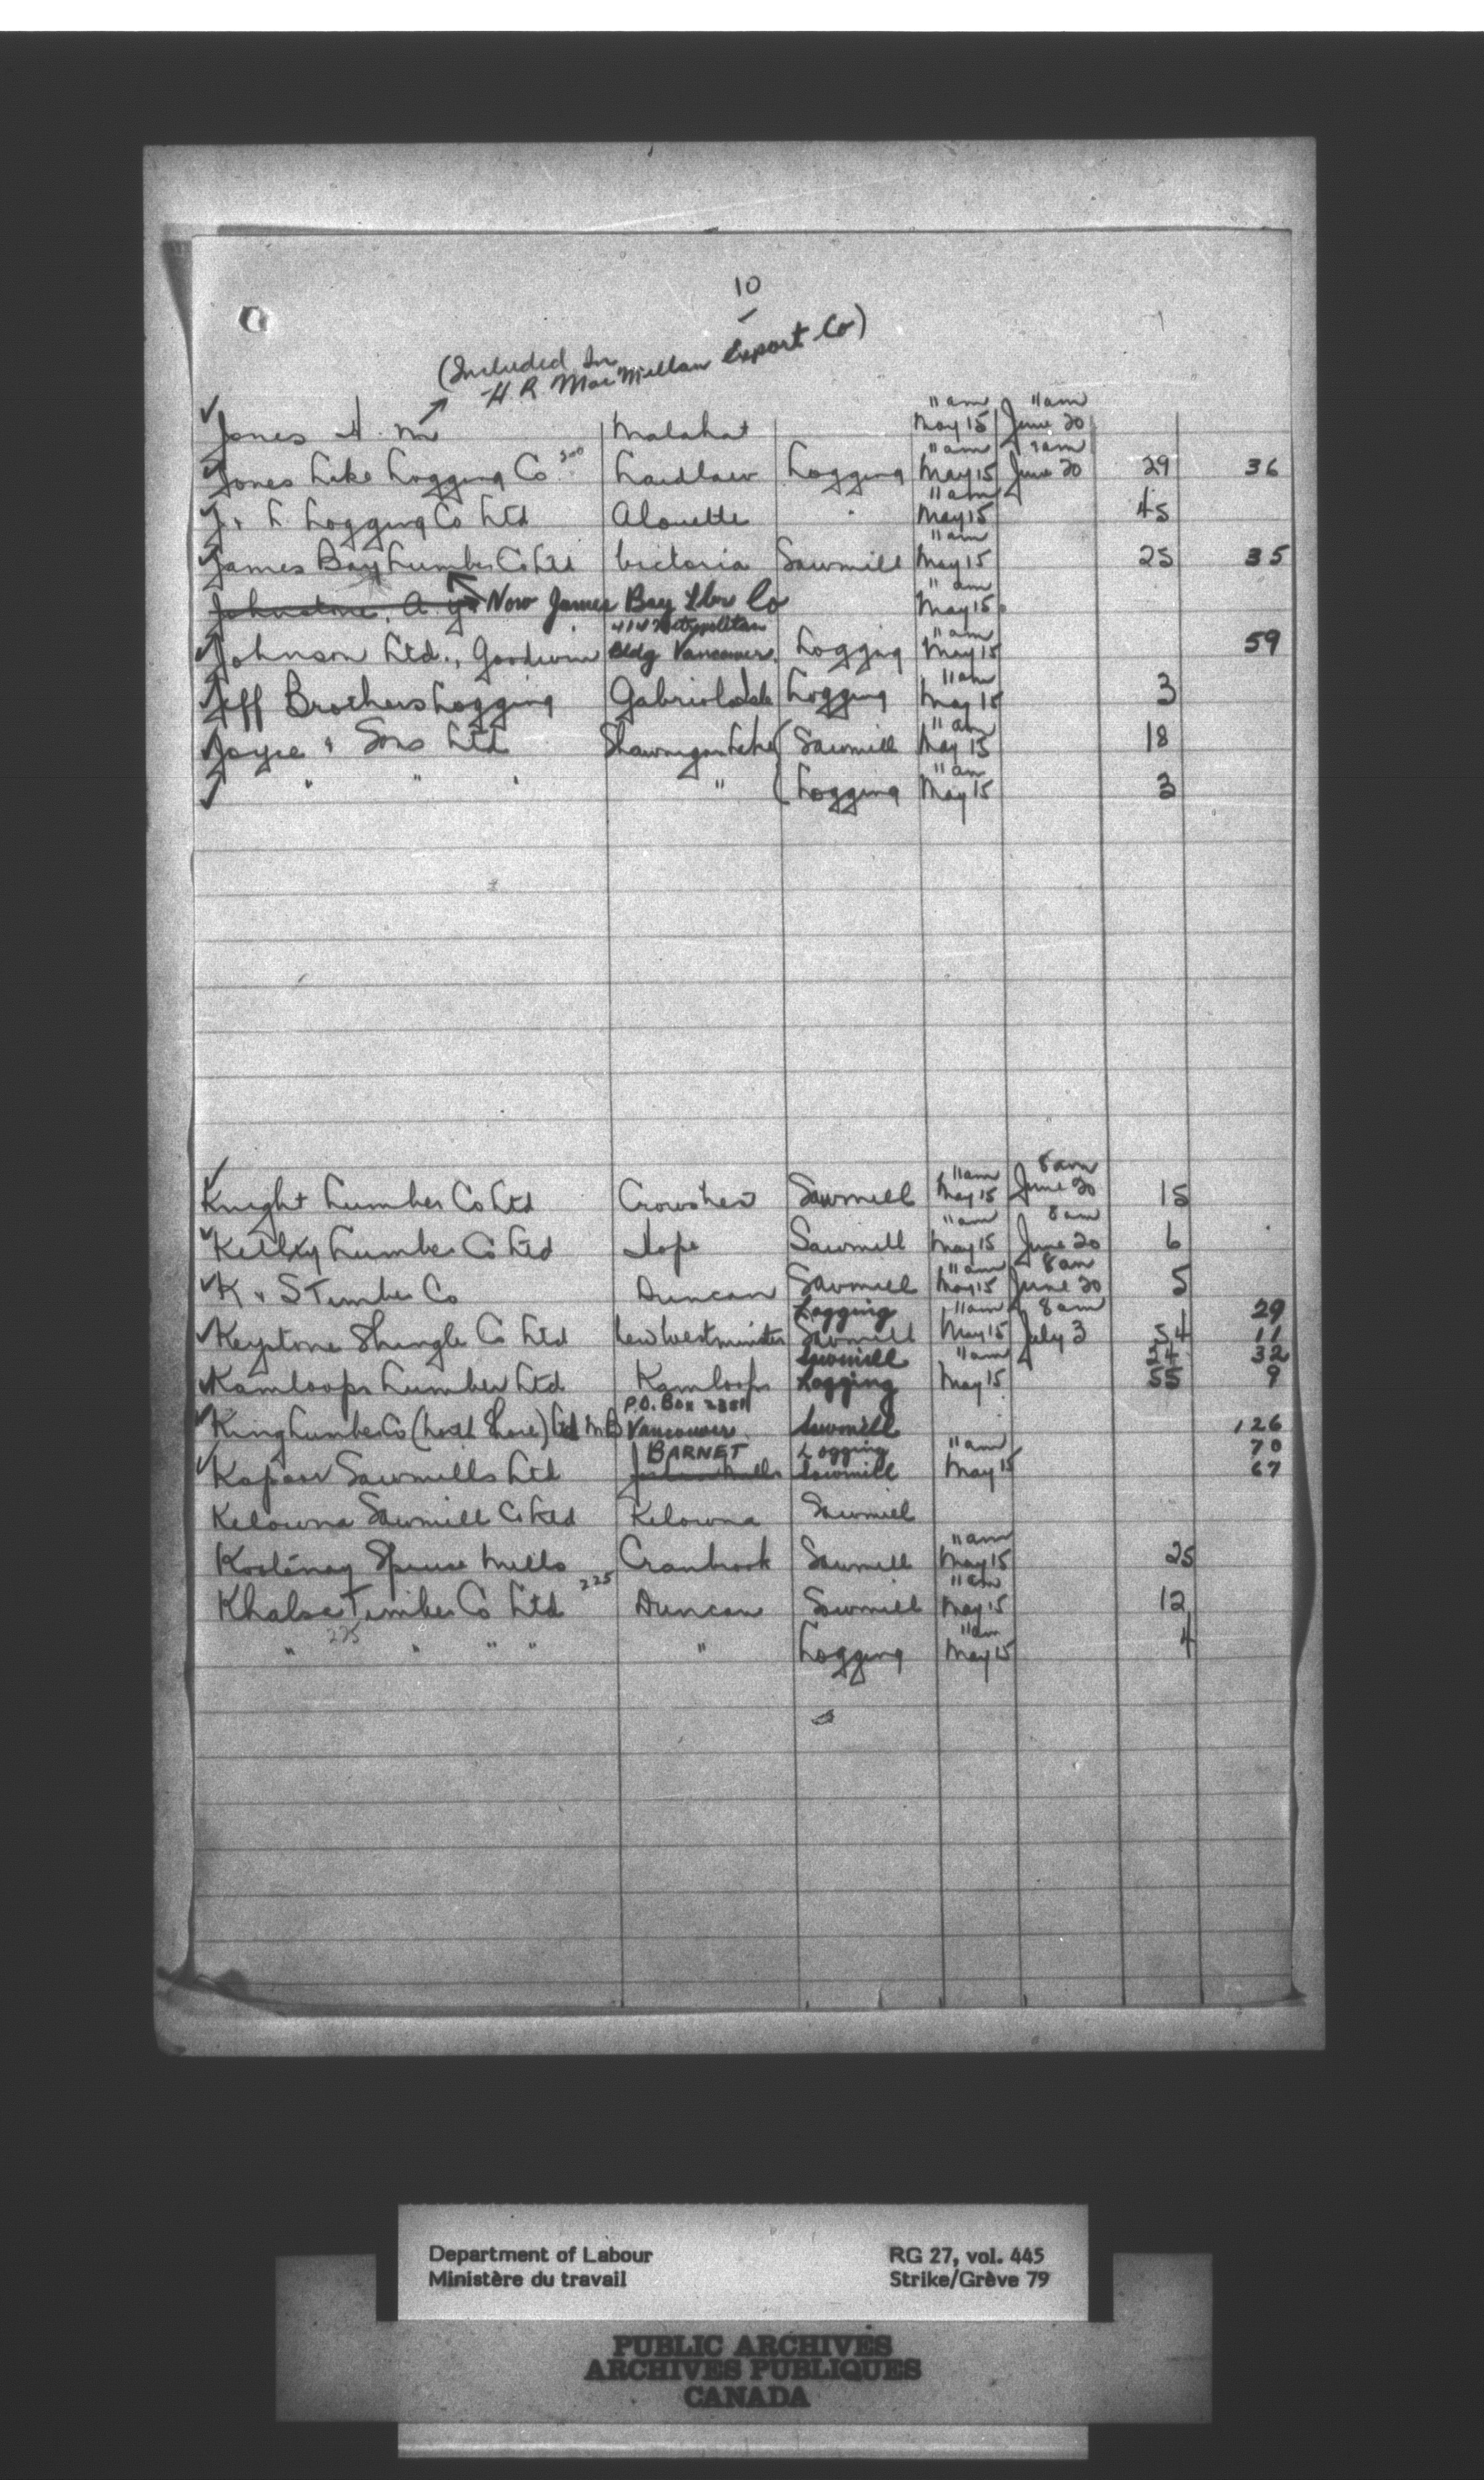 10
(Included In
H. R. MacMillan Export Co)
Jones H. M Malahat 11am May 15 11am June 20
Jones Lake Logging Co Laidlaw Logging 11am May 15 June 20 29 36
J. & L Logging Co Ltd Alouette " 11am May 15 45
James Bay Lumber Co Ltd Victoria Sawmill 11am May 15 25 35
Johnstone, A. Now James Bay Lbr Co 11am May 15
Johnson Ltd., Goodwin 414 Metropolitan Bldg Vancouver. Logging 11am May 15 59
Jeff Brothers Logging Gabriola Logging 11am May 15 3
Joyce & Sons Ltd Shawnigan Lake ( Sawmill 11am May 15 18
" " " " ( Logging 11am May 15 3
Knight Lumber Co Ltd Crowsnest Sawmill 11am May 15 8am June 20 15
Kelley Lumber Co Ltd Hope Sawmill 11am May 15 8am June 20 6
K & S Timber Co Duncan Sawmill 11am May 15 8am June 20 5
Keystone Shingle Co Ltd New Westminster Logging Sawmill 11am May 15 8am July 3 54 29 11
Kamloops Lumber Ltd Kamloops Sawmill Logging 11am May 15 24 55 32 9
King Lumber Co (North Shore) Ltd P.O. Box Vancouver. Sawmill 126
Kapoor Sawmills Ltd BARNET Logging Sawmill 11am May 15 70 67
Kelowna Sawmill Co Ltd Kelowna Sawmill
Kootenay Spruce Mills Cranbrook Sawmill 11am May 15 25
Khalsa Timber Co Ltd 225 Duncan Sawmill 11am May 15 12
" 225 " " " " Logging 11am May 15 4
Department of Labour RG 27, vol. 445
Ministère du travail Strike/Grève 79
PUBLIC ARCHIVES
ARCHIVES PUBLIQUES
CANADA